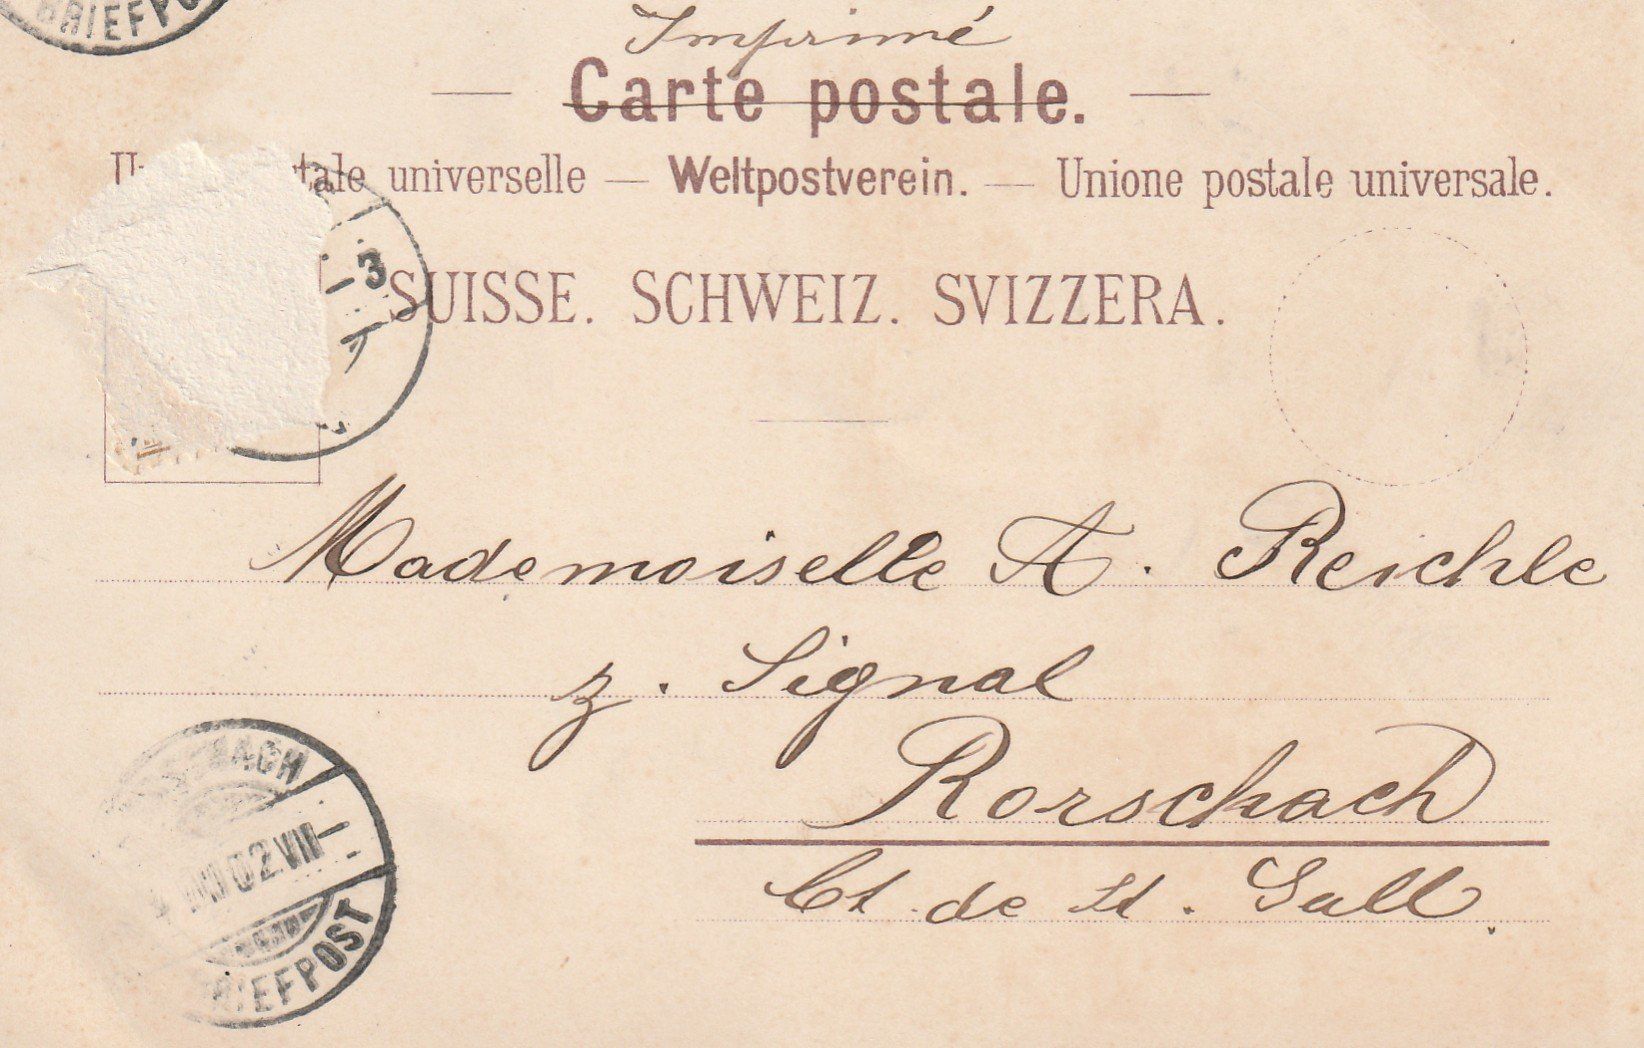 BRIEFPO
Imprimé
Carte postale.
tale universelle — Weltpostverein. — Unione postale universale.
3
SUISSE. SCHWEIZ. SVIZZERA.
Mademoiselle A. Reichle
z. Signal
Rorschach
Ct de St. Gall
ACH
02.VIII
BRIEFPOST